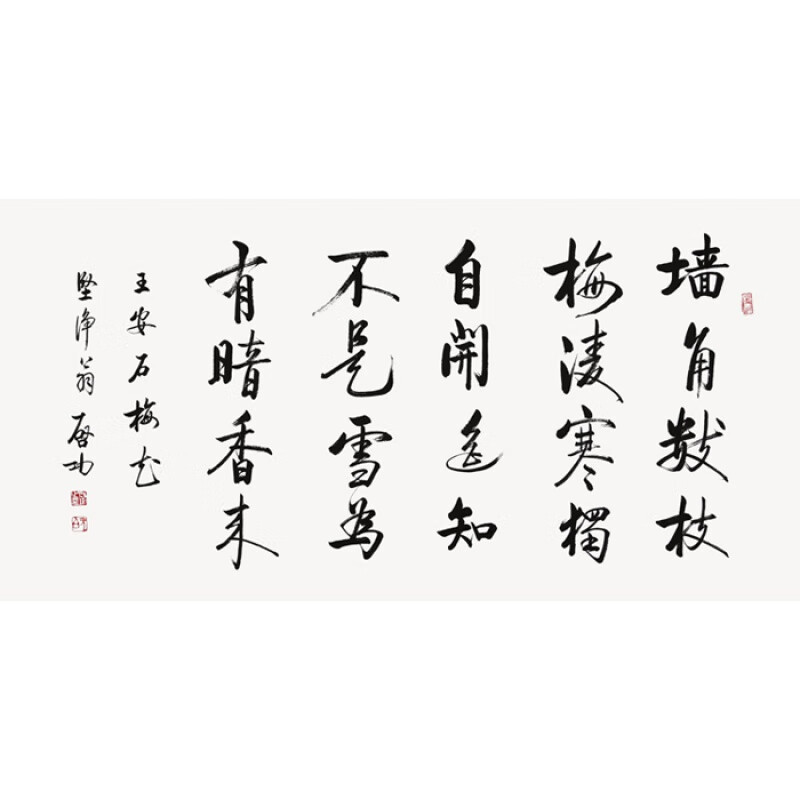 墙角数枝
梅凌寒獨
自開遥知
不是雪為
有暗香来
王安石梅花
坚净翁启功